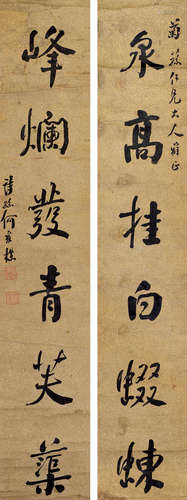 菊蓀仁兄大人雅正
泉高挂白蝃蝀
峰爛發青芙蕖
詩孫何維樸